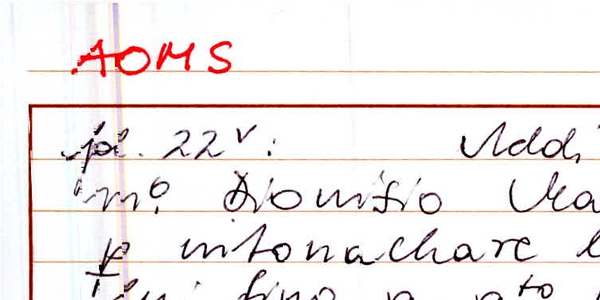 AOMS
fol. 22v: Addi
m.o Dionisio Ma
p intonachare l
fino a q.to